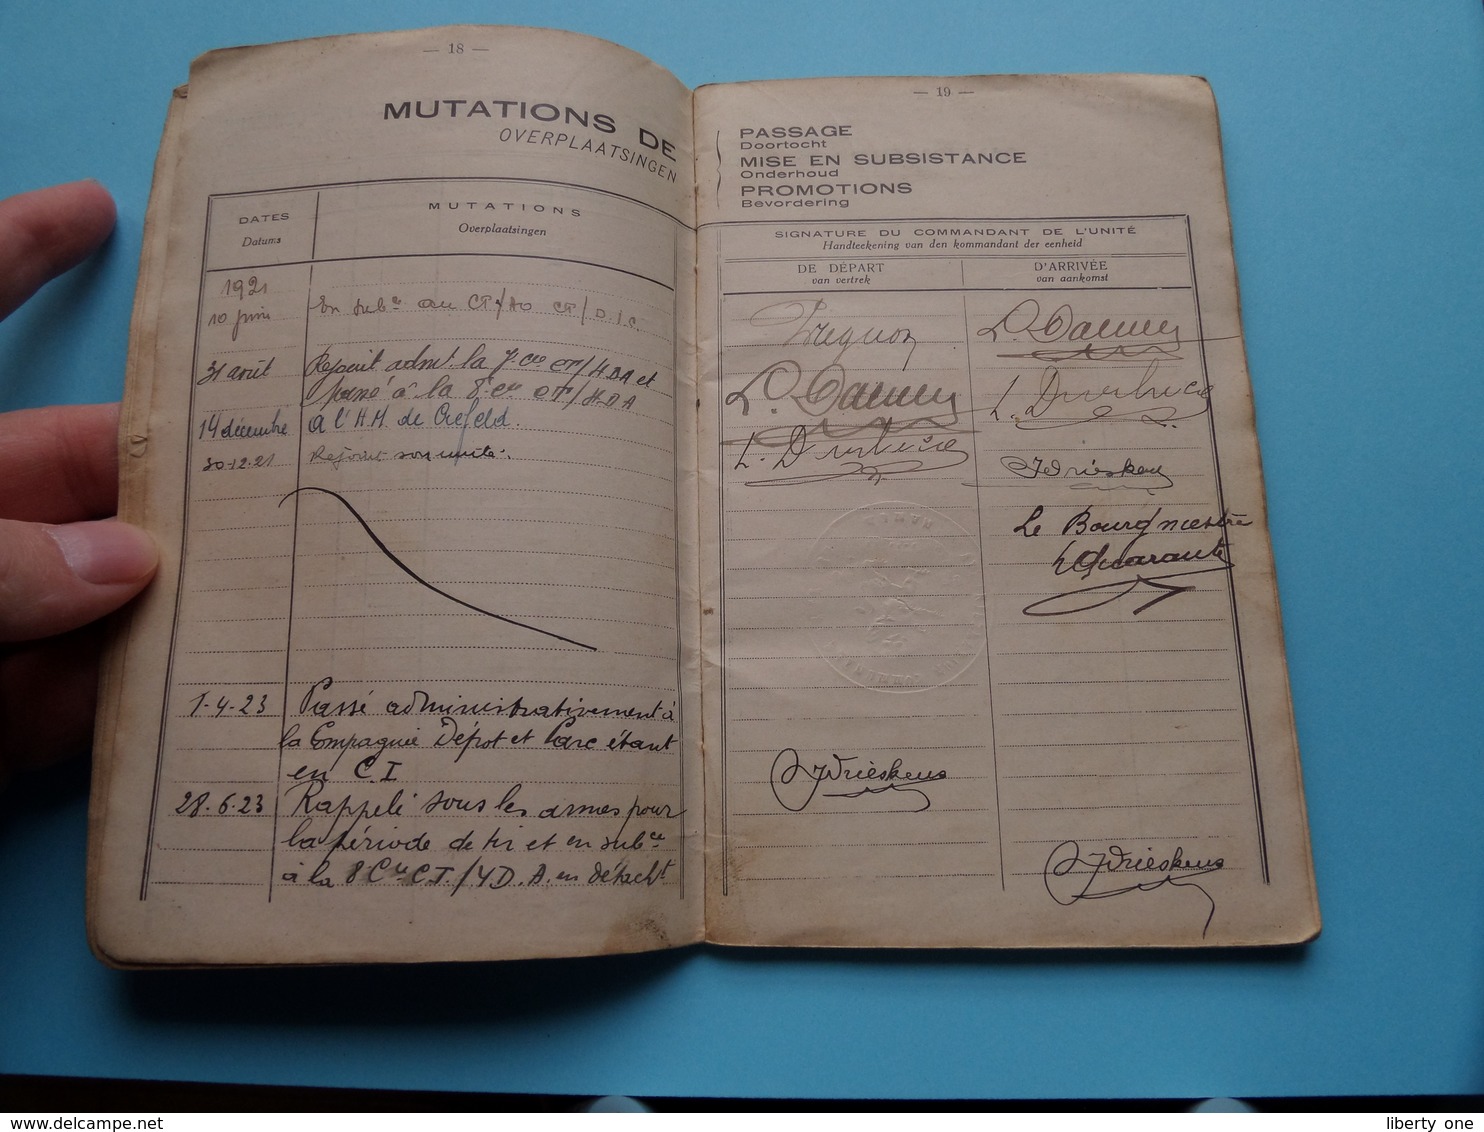 — 18 —
MUTATIONS DE
OVERPLAATSINGEN
DATES
Datums
MUTATIONS
Overplaatsingen
1921
10 juin
En subce au CT/
CT/D.I.C.
31 août
Rejoint admt. la 7e cie CT/HDA et
passé à la 8e cie CT/H.D.A
14 décembre
à l'H.M. de Crefeld.
30-12-21
Rejoint son unité.
1-4-23
Passé administrativement à
la Compagnie Dépot et Parc étant
en C.I
28-6-23
Rappelé sous les armes pour
la période de tir et en subce
à la 8 Cie C.T./4 D.A. en détacht
— 19 —
PASSAGE
Doortocht
MISE EN SUBSISTANCE
Onderhoud
PROMOTIONS
Bevordering
SIGNATURE DU COMMANDANT DE L'UNITÉ
Handteekening van den kommandant der eenheid
DE DÉPART
van vertrek
D'ARRIVÉE
van aankomst
Le Bourgmestre
Quarante
JDrieskens
JDrieskens
liberty one